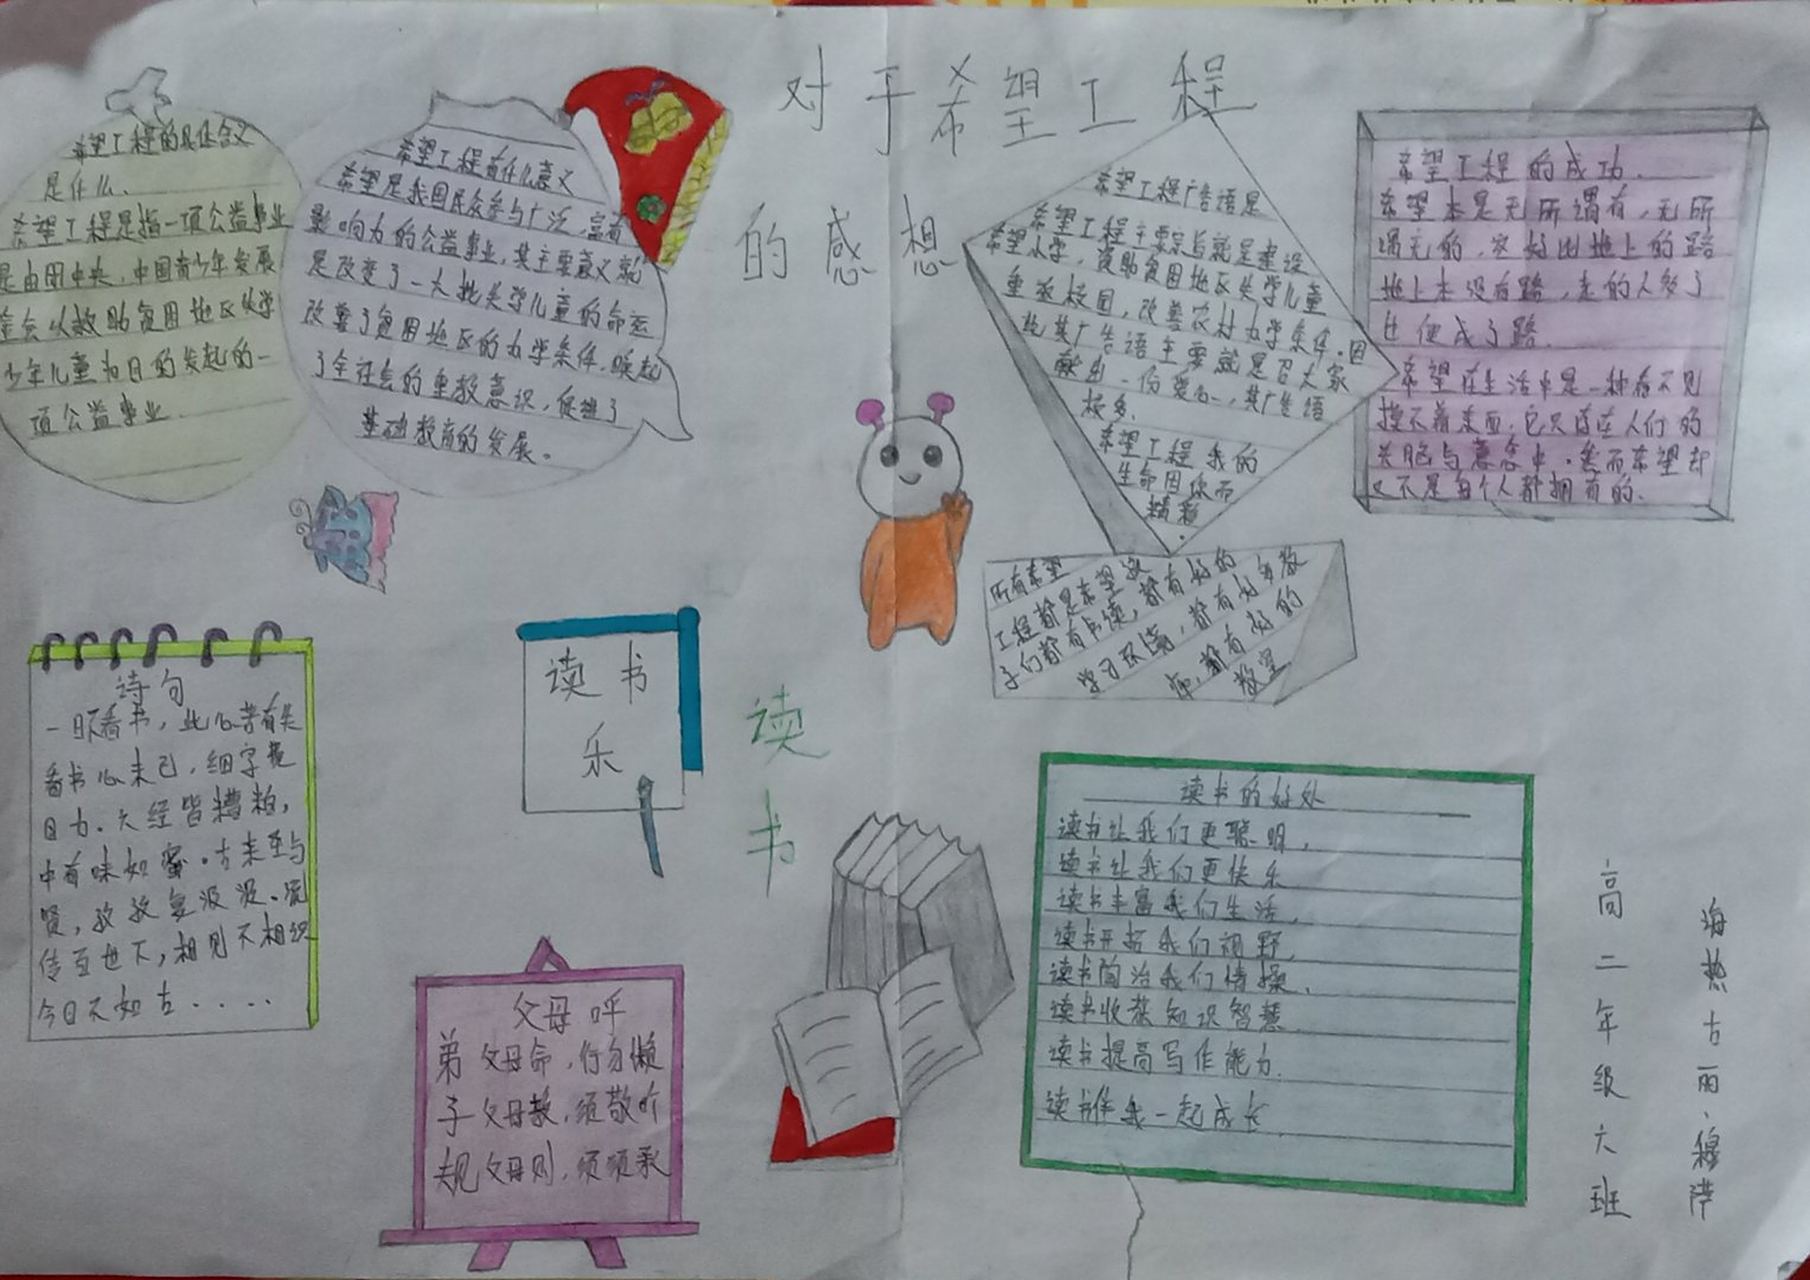 对于希望工程
的感想
希望工程的具体含义
是什么、
希望工程是指一项公益事业
是由团中央，中国青少年发展
基会以救助贫困地区失学
少年儿童为目的发起的一
项公益事业．
希望工程有什么意义
希望是我国民众参与广泛，富有
影响力的公益事业，其主要意义就
是改变了一大批失学儿童的命运
改善了贫困地区的办学条件．唤起
了全社会的重教意识，促进了
基础教育的发展。
希望工程广告语是
希望工程主要宗旨就是建设
希望小学，资助贫困地区失学儿童
重返校园，改善农村办学条件．因
此其广告语主要就是召大家
献出一份爱心，其广告语
极多．
希望工程我的
生命因你而
精彩．
希望工程的成功．
希望本是无所谓有，无所
谓无的，这好比地上的路
地上本没有路，走的人多了
也便成了路．
希望在生活中是一种看不见
摸不着东西．它只活在人们的
头脑与意念中．然而希望却
又不是每个人都拥有的．
所有希望
工程都是希望孩
子们都有书读，都有好的
学习环境，都有好的教
师，都有好的
教室
诗句
一日不看书，此心若有失
看书心未已，细字耗
目力．六经皆糟粕，
中有味如蜜．古来圣与
贤，孜孜复汲汲．流
传百世下，相见不相识
今日不如古．．．．
读书
乐
读
书
父母呼
弟 父母命，行勿懒
子 父母教，须敬听
规 父母则，须顺承
读书的好处
读书让我们更聪明，
读书让我们更快乐
读书丰富我们生活，
读书开拓我们视野，
读书陶冶我们情操，
读书收获知识智慧
读书提高写作能力．
读书伴我一起成长
高二年级六班
海热古丽．穆萨